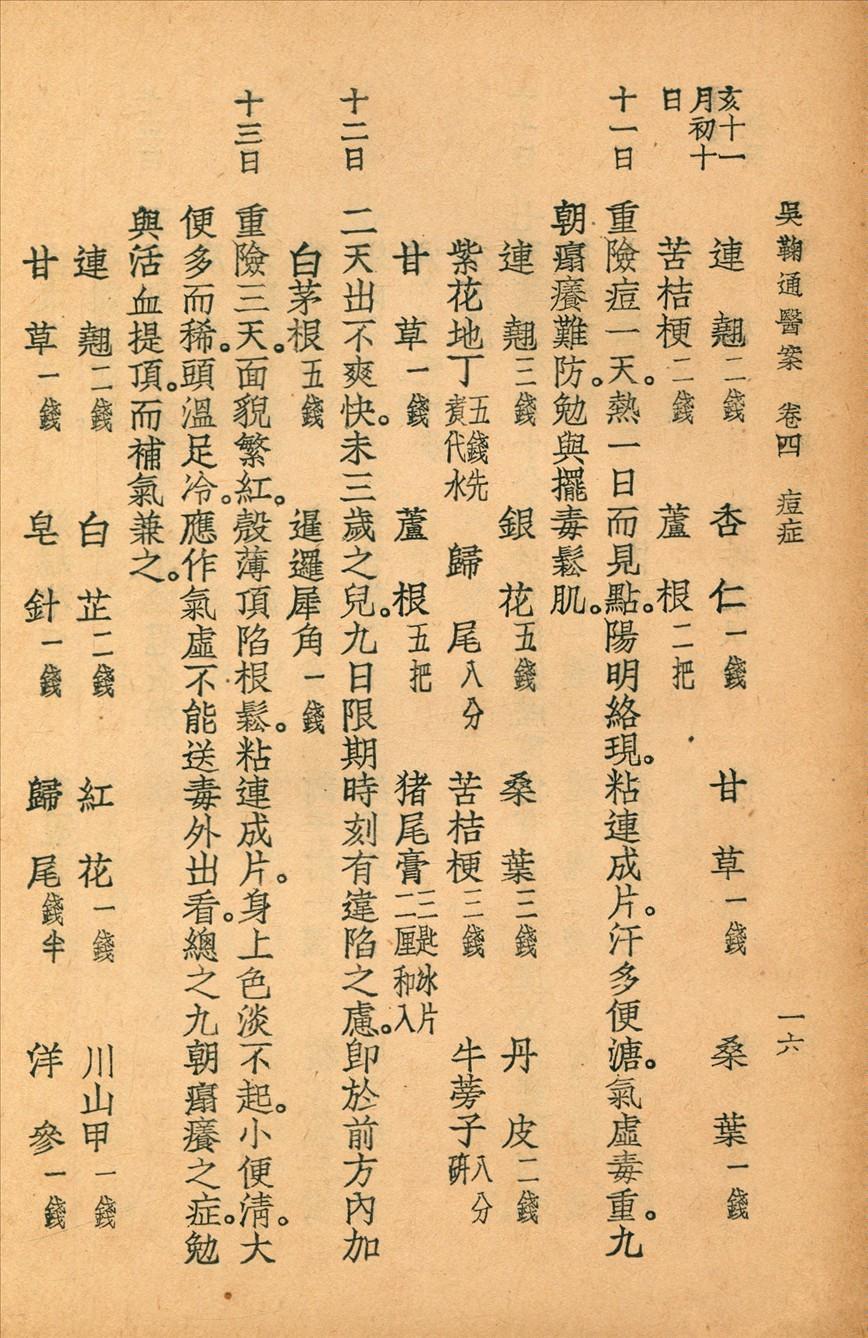 吳鞠通醫案　卷四　痘症　一六
亥十一月初十日
連翹二錢　杏仁一錢　甘草一錢　桑葉一錢
苦桔梗二錢　蘆根二把
十一日　重險痘一天。熱一日而見點。陽明絡現。粘連成片。汗多便溏。氣虛毒重。九
朝癟癢難防。勉與擺毒鬆肌。
連翹三錢　銀花五錢　桑葉三錢　丹皮二錢
紫花地丁五錢先煑代水　歸尾八分　苦桔梗三錢　牛蒡子八分研
甘草一錢　蘆根五把　猪尾膏三匙冰片二厘和入
十二日　二天出不爽快。未三歲之兒。九日限期時刻有違陷之慮。卽於前方內加
白茅根五錢　暹邏犀角一錢
十三日　重險三天。面貌繁紅。殼薄頂陷根鬆。粘連成片。身上色淡不起。小便淸。大
便多而稀。頭溫足冷。應作氣虛不能送毒外出看。總之九朝癟癢之症。勉
與活血提頂。而補氣兼之。
連翹二錢　白芷二錢　紅花一錢　川山甲一錢
甘草一錢　皂針一錢　歸尾錢半　洋參一錢